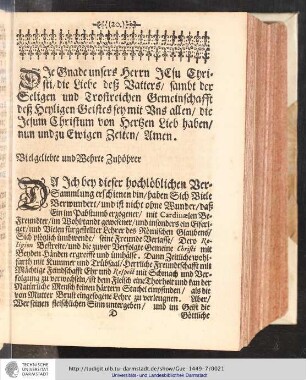 (20.)
DIe Gnade unsers Herrn JEsu Chri-
sti/ die Liebe deß Vatters/ sambt der
Seligen und Trostreichen Gemeinschafft
deß Heyligen Geistes sey mit Vns allen/ die
JEsum Christum von Hertzen Lieb haben/
nun und zu Ewigen Zeiten/ Amen.
Vielgeliebte und Wehrte Zuhörer
DA Ich bey dieser hochlöblichen Ver-
Sammlung erschienen bin/ haben Sich Viele
Verwundert/ und ist nicht ohne Wunder/ daß
Ein im Pabstumb erzogener/ mit Cardinälen Be-
Freundter/ im Wohlstandt gewesener/ und insonders ein Eyferi-
ger/ und Vielen fürgestellter Lehrer des Römischen Glaubens/
Sich plötzlich umbwende/ seine Freunde Verlasse/ Dero Re-
ligion Bestreite/ und die zuvor Verfolgte Gemeine Christi mit
Beyden Händen ergreiffe und
mit Kummer und Trübsaal/ Hertzliche Freundschafft mit
Mächtige Fandschafft Ehr und Respect mit Schmach und Ver-
folgung zu verwechseln/ ist dem Fleisch eine Thorheit und kan der
Natürliche Mensch keinen härtern Stachel empfinden/ als die
von Mutter Brust eingesogene Lehre zu verleugnen. Aber/
Wer seinen fleischlichen Sinn untergeben/ und im Geist die
D Göttliche
TECHNISCHE
UNIVERSITÄT
DARMSTADT
http://tudigit.ulb.tu-darmstadt.de/show/Gue-1449-7/0021
Universitäts- und Landesbibliothek Darmstadt